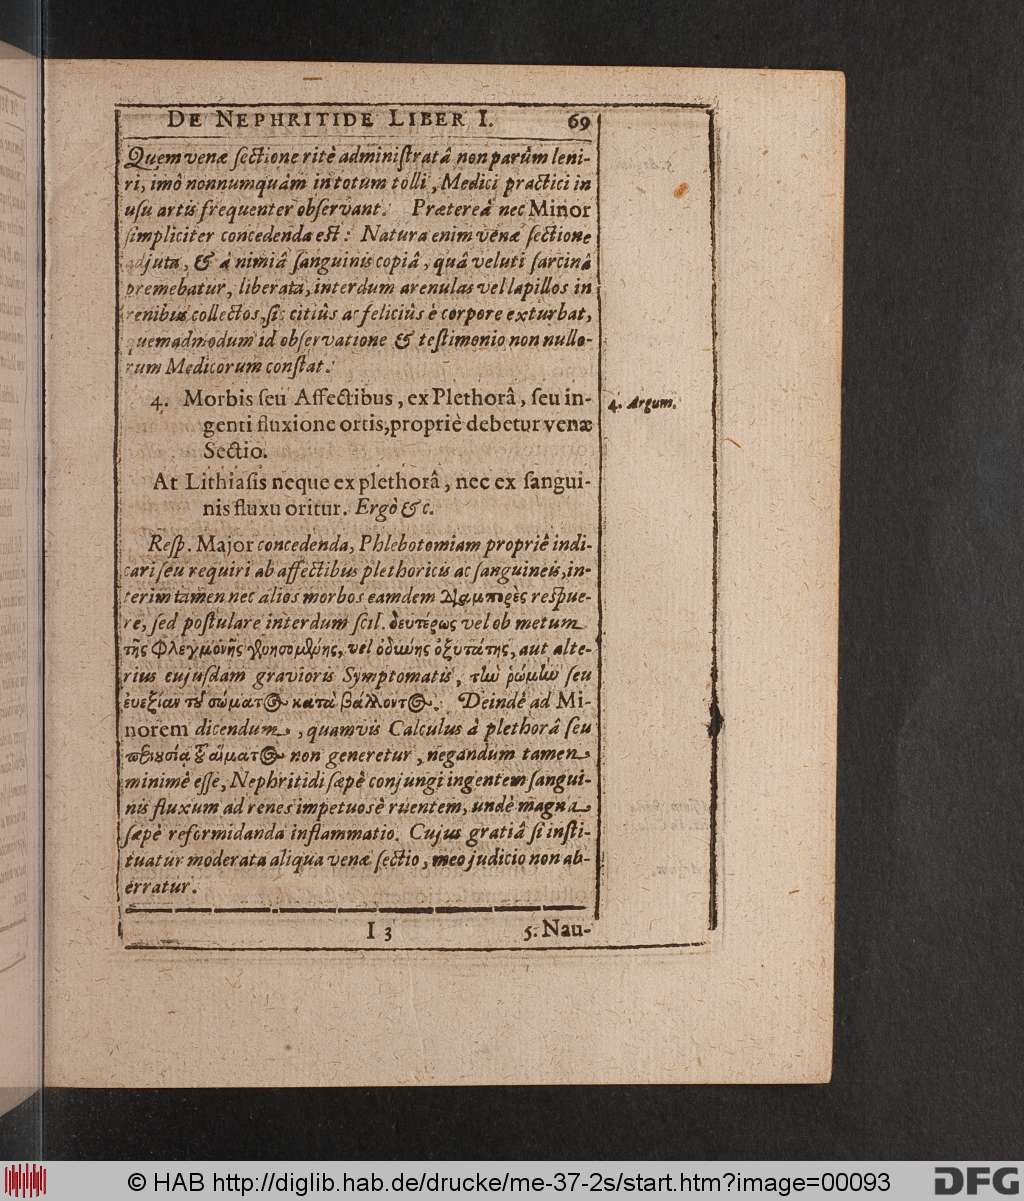 DE NEPHRITIDE LIBER I. 69
Quem venæ ſectione ritè adminiſtratâ non parùm leni-
ri, imò nonnumquàm in totum tolli, Medici practici in
uſu artis frequenter obſervant. Prætereà nec Minor
ſimpliciter concedenda eſt: Natura enim venæ ſectione
adjuta, & à nimiâ ſanguinis copiâ, quâ veluti ſarcinâ
premebatur, liberata, interdum arenulas vel lapillos in
renibus collectos, ſic citiùs ac feliciùs è corpore exturbat,
quemadmodum id obſervatione & teſtimonio non nullo-
rum Medicorum conſtat.
4. Morbis ſeu Affectibus, ex Plethorâ, ſeu in-
genti fluxione ortis, propriè debetur venæ
Sectio.
4. Argum.
At Lithiaſis neque ex plethorâ, nec ex ſangui-
nis fluxu oritur. Ergò &c.
Reſp. Major concedenda, Phlebotomiam propriè indi-
cari ſeu requiri ab affectibus plethoricis ac ſanguineis, in-
terim tamen nec alios morbos eamdem reſpue-
re, ſed poſtulare interdum ſcil. δευτέρως vel ob metum
τῆς Φλεγμονῆς γενησομένης, vel ὀδύνης ὀξυτάτης, aut alte-
rius cujuſdam gravioris Symptomatis, τὼ ῥώμὼ ſeu
ἐυεξίαν τοῦ σώματος κατα βάλλοντος. Deindè ad Mi-
norem dicendum, quamvis Calculus à plethorâ ſeu
περιουσίᾳ τοῦ αἵματος non generetur, negandum tamen
minimè eſſe, Nephritidi ſæpè conjungi ingentem ſangui-
nis fluxum ad renes impetuosè ruentem, undè magna
ſæpè reformidanda inflammatio. Cujus gratiâ ſi inſti-
tuatur moderata aliqua venæ ſectio, meo judicio non ab-
erratur.
I 3 5. Nau-
© HAB http://diglib.hab.de/drucke/me-37-2s/start.htm?image=00093
DFG